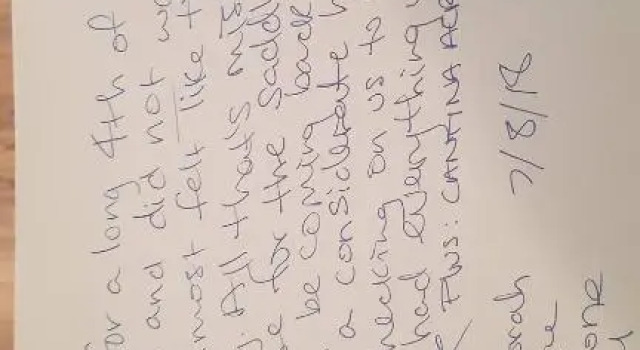 for a long 4th of
and did not
most felt like
All that's
for the
be coming back
a considerate
checking on us to
had everything
FWS: CANTINA
7/8/18
one